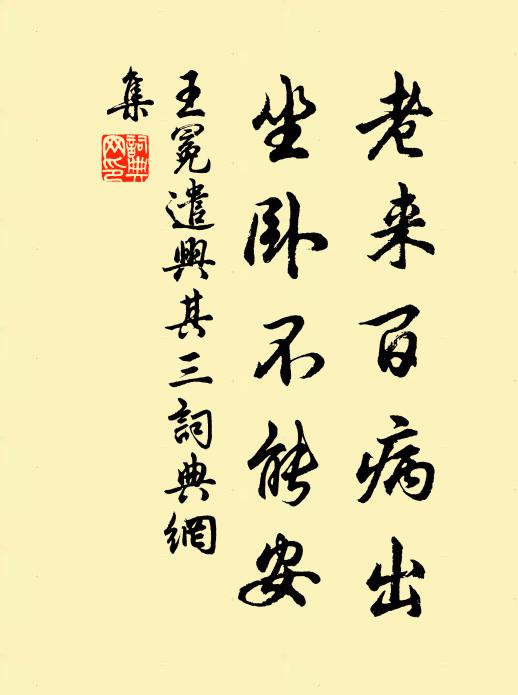 老来百病出
坐卧不能安
王冕遣興其三詞典網
集
詞典網印